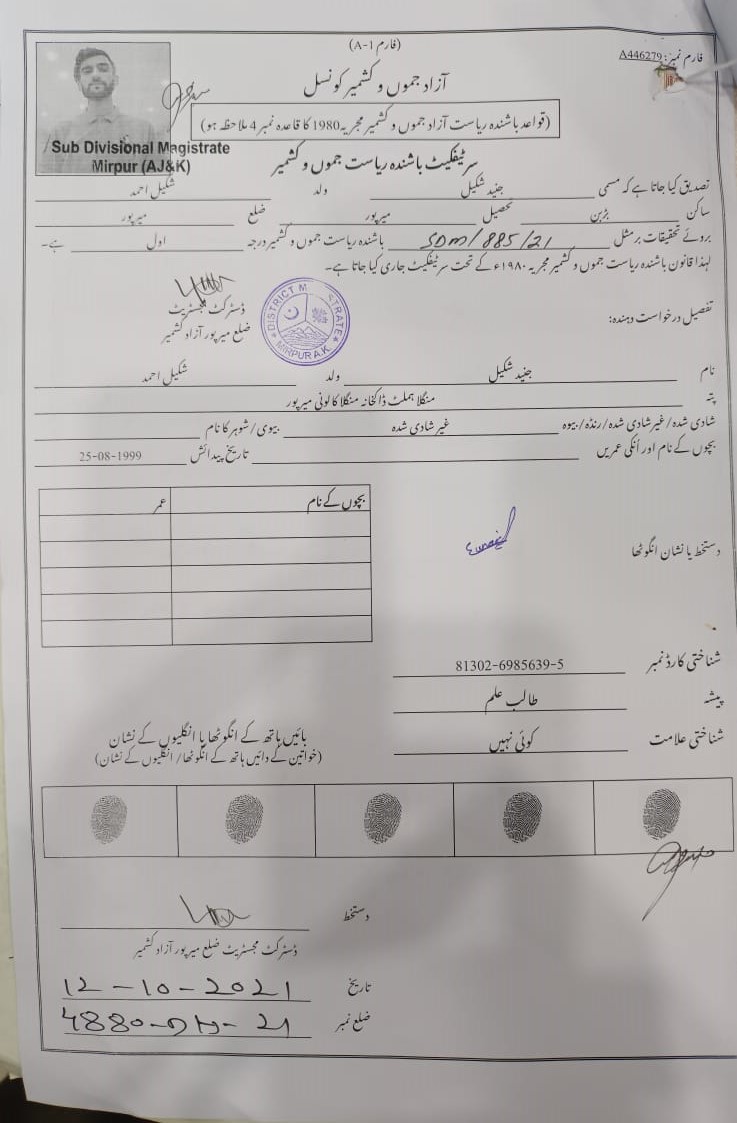 (فارم 1-A)
فارم نمبر: A446279
آزاد جموں و کشمیر کونسل
(قواعد باشندہ ریاست آزاد جموں و کشمیر مجریہ 1980 کا قاعدہ نمبر 4 ملاحظہ ہو)
Sub Divisional Magistrate
Mirpur (AJ&K)
سرٹیفکیٹ باشندہ ریاست جموں و کشمیر
تصدیق کیا جاتا ہے کہ مسمی جنید شکیل ولد شکیل احمد
ساکن بڑبن تحصیل میرپور ضلع میرپور
بروئے تحقیقات برمثل SDM/885/21 باشندہ ریاست جموں و کشمیر درجہ اول ہے۔
لہذا قانون باشندہ ریاست جموں و کشمیر مجریہ ۱۹۸۰ء کے تحت سرٹیفکیٹ جاری کیا جاتا ہے۔
ڈسٹرکٹ مجسٹریٹ
ضلع میرپور آزاد کشمیر
DISTRICT M STRATE
MIRPUR A.K
تفصیل درخواست دہندہ:
نام جنید شکیل ولد شکیل احمد
پتہ منگلا ہملٹ ڈاکخانہ منگلا کالونی میرپور
شادی شدہ/غیر شادی شدہ/رنڈہ/بیوہ غیر شادی شدہ بیوی/شوہر کا نام
بچوں کے نام اور انکی عمریں تاریخ پیدائش 25-08-1999
بچوں کے نام عمر
دستخط یا نشان انگوٹھا
شناختی کارڈ نمبر 81302-6985639-5
پیشہ طالب علم
شناختی علامت کوئی نہیں
بائیں ہاتھ کے انگوٹھا یا انگلیوں کے نشان
(خواتین کے دائیں ہاتھ کے انگوٹھا/انگلیوں کے نشان)
دستخط
ڈسٹرکٹ مجسٹریٹ ضلع میرپور آزاد کشمیر
تاریخ 12-10-2021
ضلع نمبر 4880-DM-21